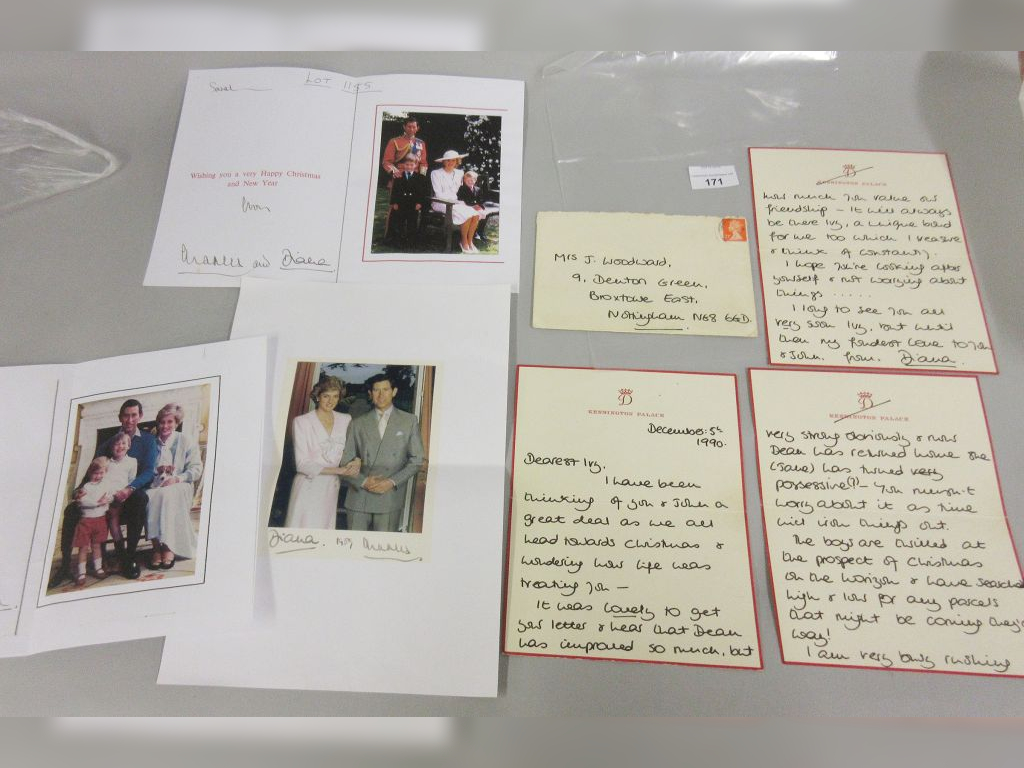 Sarah
LOT 1195
Wishing you a very Happy Christmas
and New Year
from
Charles and Diana
Diana. Charles
171
Mrs J. Woodward,
9, Denton Green,
Broxtowe East,
Nottingham NG8 6GD.
KENSINGTON PALACE
how much you value our
friendship - It will always
be there Ivy, a unique bond
for me too which I treasure
& think of constantly.
I hope you're looking after
yourself & not worrying about
things .....
I long to see you all
very soon Ivy, but until
then my fondest love to you
& John. from. Diana.
KENSINGTON PALACE
December: 5th
1990.
Dearest Ivy,
I have been
thinking of you & John a
great deal as we all
head towards Christmas &
wondering how life was
treating you -
It was lovely to get
your letter & hear that Dean
has improved so much, but
KENSINGTON PALACE
very strong obviously & now
Dean has returned home she
(Jane) has turned very
possessive(?) - You mustn't
worry about it as time
will iron things out.
The boys are thrilled at
the prospect of Christmas
on the horizon & have searched
high & low for any parcels
that might be coming they're
way!
I am very busy rushing